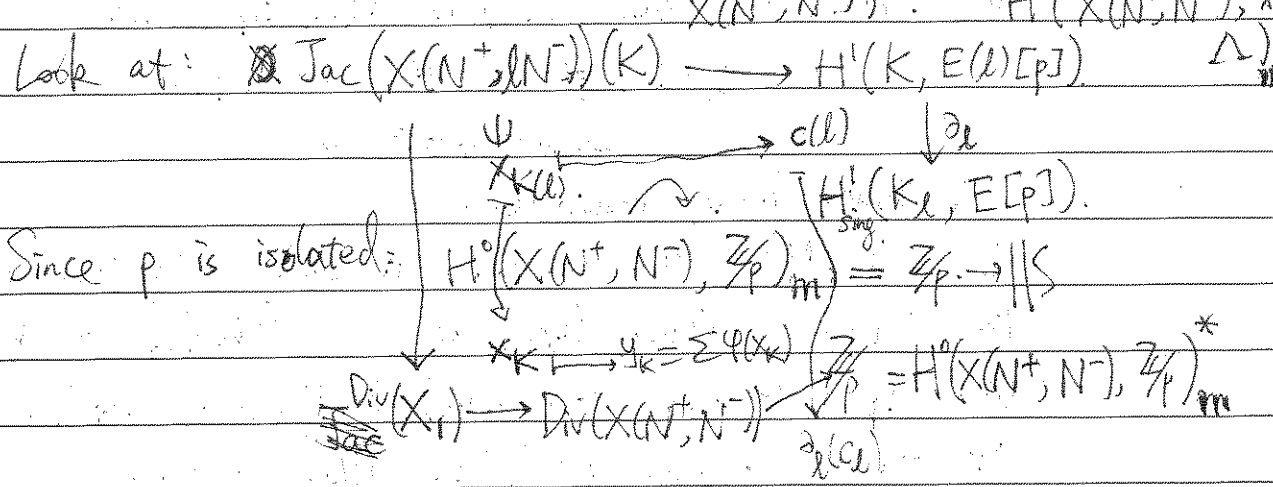 X(N⁺, N⁻)
Look at: Jac(X(N⁺, lN⁻))(K) ⟶ H¹(K, E(l)[p])
Λ)
Ψ c(l) ↓∂_l
x_{K(l)}. H¹_{sing.}(K_l, E[p]).
Since p is isolated: H⁰(X(N⁺, N⁻), Z/p)_m = Z/p. →
x_K ↦ y_K = Σφ(x_K) Z/p = H⁰(X(N⁺, N⁻), Z/p)*_m
Div(X₁) ⟶ Div(X(N⁺, N⁻))
∂_l(c_l)